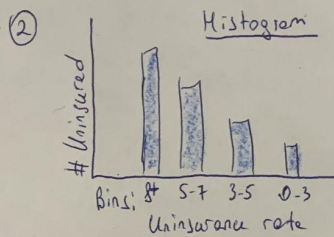 ② Histogram
# Uninsured
Bins: 8+ 5-7 3-5 0-3
Uninsurance rate